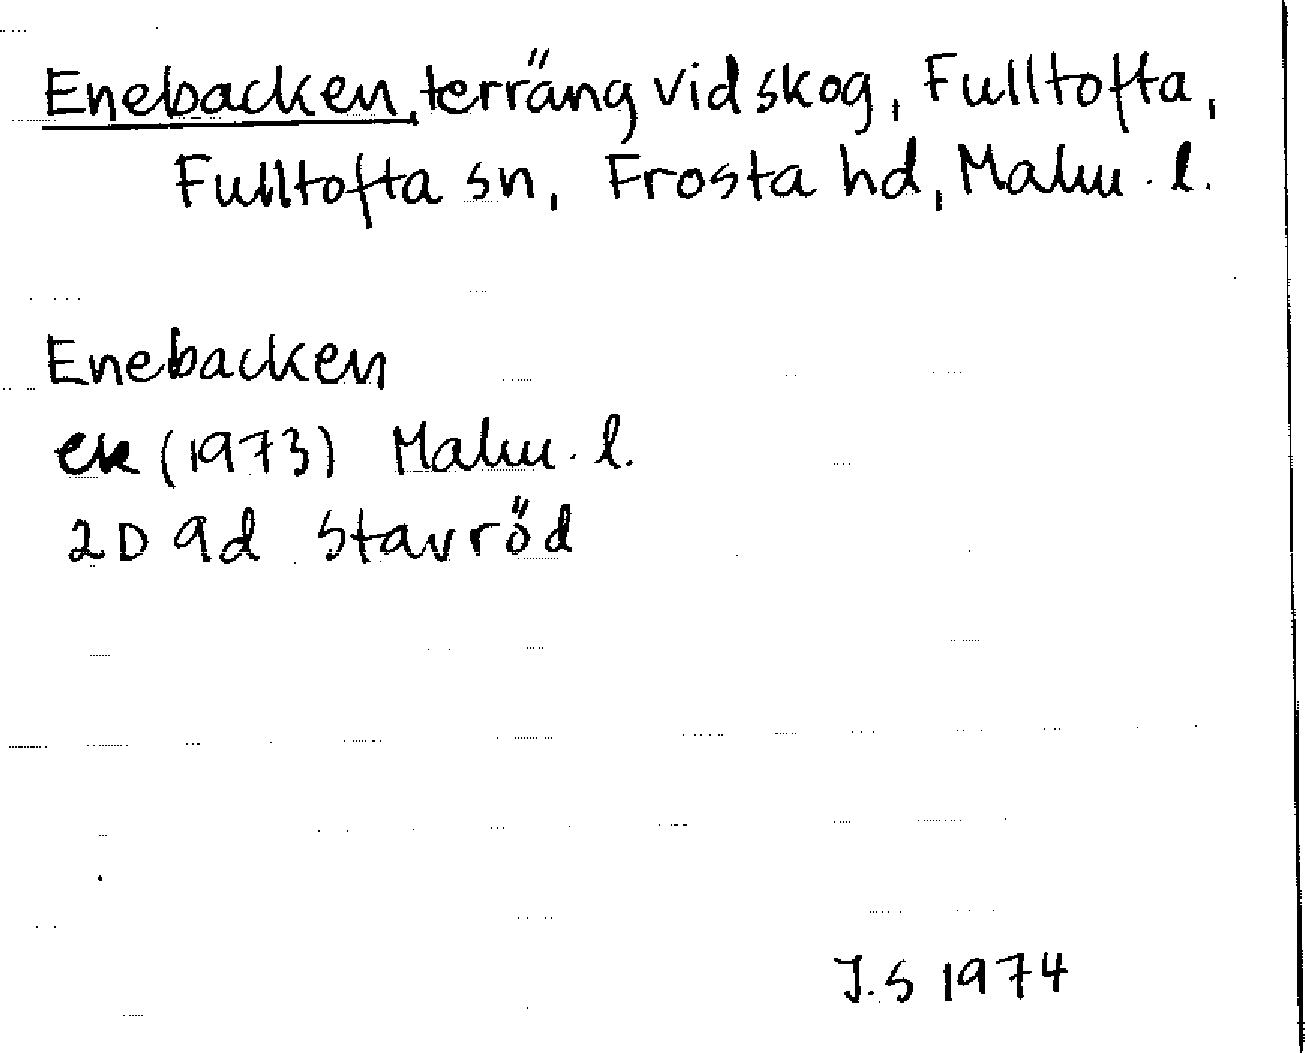 Enebacken, terräng vid skog, Fulltofta,
Fulltofta sn, Frosta hd, Malm. l.
Enebacken
ek (1973) Malm. l.
2D 9d Stavröd
J.S 1974